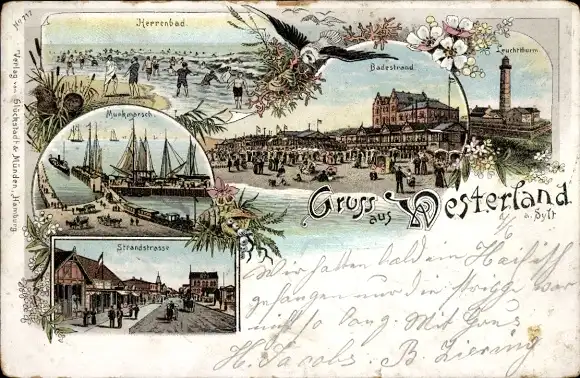 No 717
Herrenbad.
Leuchtthurm.
Badestrand.
Verlag von Glückstadt & Münden, Hamburg
Munkmarsch.
Gruss aus Westerland
a. Sylt
Strandstrasse
Wir hatten bald ein Haifisch
gefangen nur die war
nicht so lang. Mit Gruss
H. Jacobs. B. Ziering